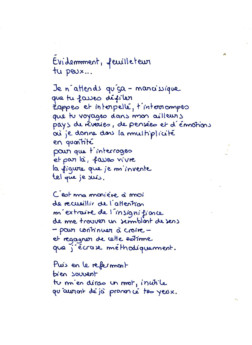 Évidemment, feuilleteur
tu peux...
Je n'attends qu'ça - narcissique
que tu fasses défiler
zappes et interpellé, t'interrompes
que tu voyages dans mon ailleurs
pays de rêveries, de pensées et d'émotions
où je donne dans la multiplicité
en quantité
pour que t'interroges
et par là, fasses vivre
la figure que je m'invente
tel que je suis.
C'est ma manière à moi
de recueillir de l'attention
m'extraire de l'insignifiance
de me trouver un semblant de sens
- pour continuer à croire -
et regagner de cette estime
que j'écrase méthodiquement.
Puis en le refermant
bien souvent
tu m'en diras un mot, inutile
qu'auront déjà prononcé tes yeux.